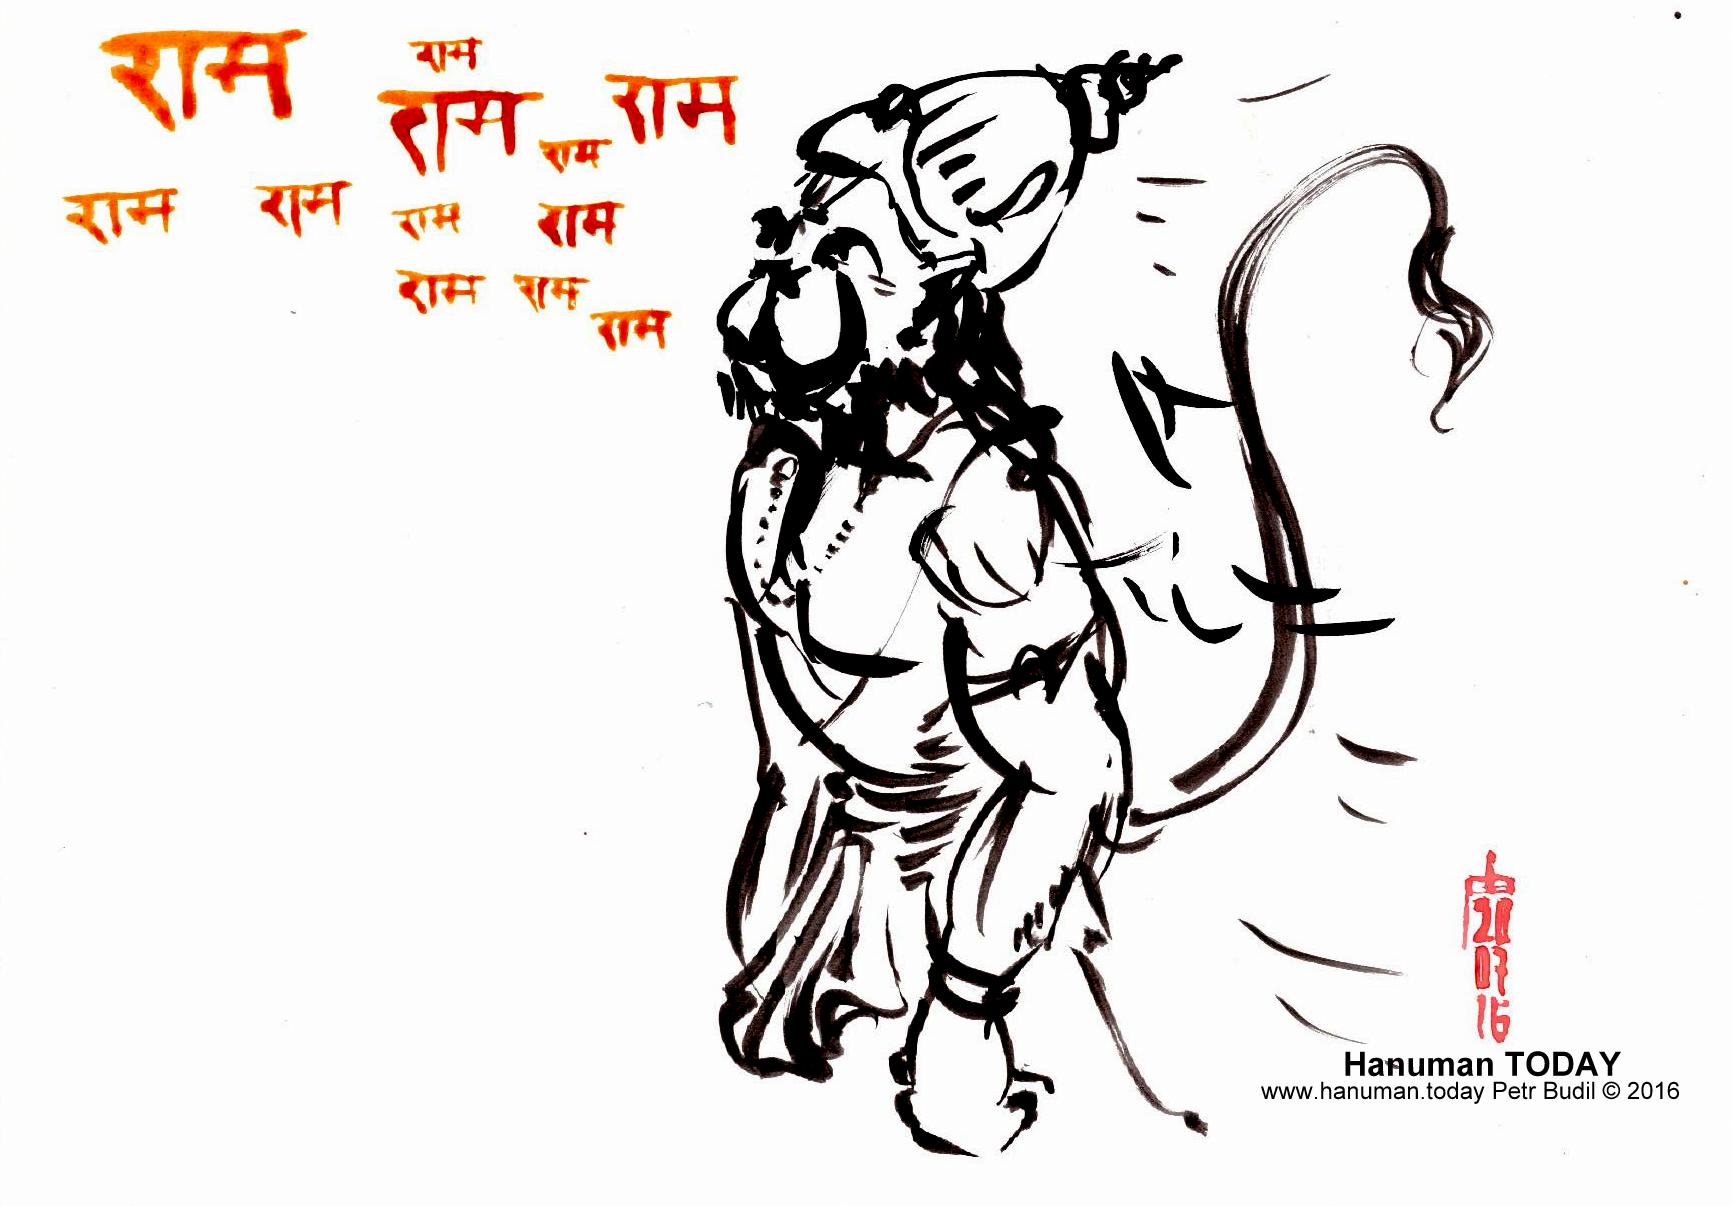 राम
राम
राम
राम
राम
राम
राम
राम
राम
राम
राम
राम
20
07
16
Hanuman TODAY
www.hanuman.today Petr Budil © 2016